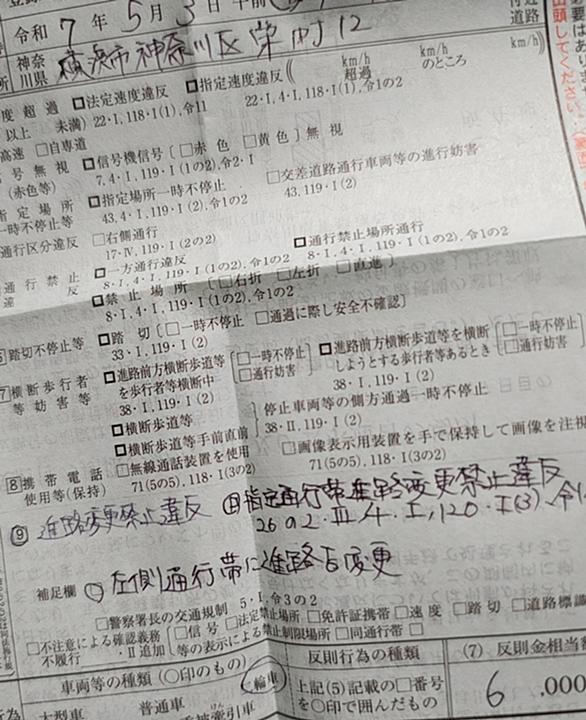 令和 7 年 5月 3日 午前
神奈川県 横浜市神奈川区栄町12
度超過 □法定速度違反 □指定速度違反 ( km/h超過 km/hのところ km/h)
以上 未満) 22・I,118・I(1),令11 22・I,4・I,118・I(1),令1の2
高速 □自専道
号無視 □信号機信号〔□赤色 □黄色〕無視
(赤色等) 7,4・I,119・I(1の2),令2・I
指定場所一時不停止等 □指定場所一時不停止 □交差道路通行車両等の進行妨害
43,4・I,119・I(2),令1の2 43,119・I(2)
通行区分違反 □右側通行
17・Ⅳ,119・I(2の2)
通行禁止違反 □一方通行違反 □通行禁止場所通行
8・I,4・I,119・I(1の2),令1の2 8・I,4・I,119・I(1の2),令1の2
□禁止場所〔□右折 □左折 □直進〕
8・I,4・I,119・I(1の2),令1の2
踏切不停止等 □踏切〔□一時不停止 □通過に際し安全不確認〕
33・I,119・I(2)
7 横断歩行者等妨害等 □進路前方横断歩道等を歩行者等横断中〔□一時不停止 □通行妨害〕 □進路前方横断歩道等を横断しようとする歩行者等あるとき〔□一時不停止 □通行妨害〕
38・I,119・I(2) 38・I,119・I(2)
□横断歩道等 停止車両等の側方通過一時不停止
□横断歩道等手前直前 38・Ⅱ,119・I(2)
8 携帯電話使用等(保持) □無線通話装置を使用 □画像表示用装置を手で保持して画像を注視
71(5の5),118・I(3の2) 71(5の5),118・I(3の2)
⑨ 進路変更禁止違反 指定通行帯進路変更禁止違反
26の2・Ⅲ,4・I,120・I(3),令1
補足欄 左側通行帯に進路を変更
□警察署長の交通規制 5・I,令3の2
□不注意による確認義務不履行・Ⅱ追加 〔□信号 □法定禁止場所 □免許証携帯 □速度 □踏切 □道路標識等の表示による禁止制限場所 □同通行帯 □
車両等の種類(○印のもの) 反則行為の種類 (7) 反則金相当額
大型車 普通車 輪車 上記(5)記載の□番号を○印で囲んだもの 6,000
重被牽引車
必要はありま
出頭してください。
道路